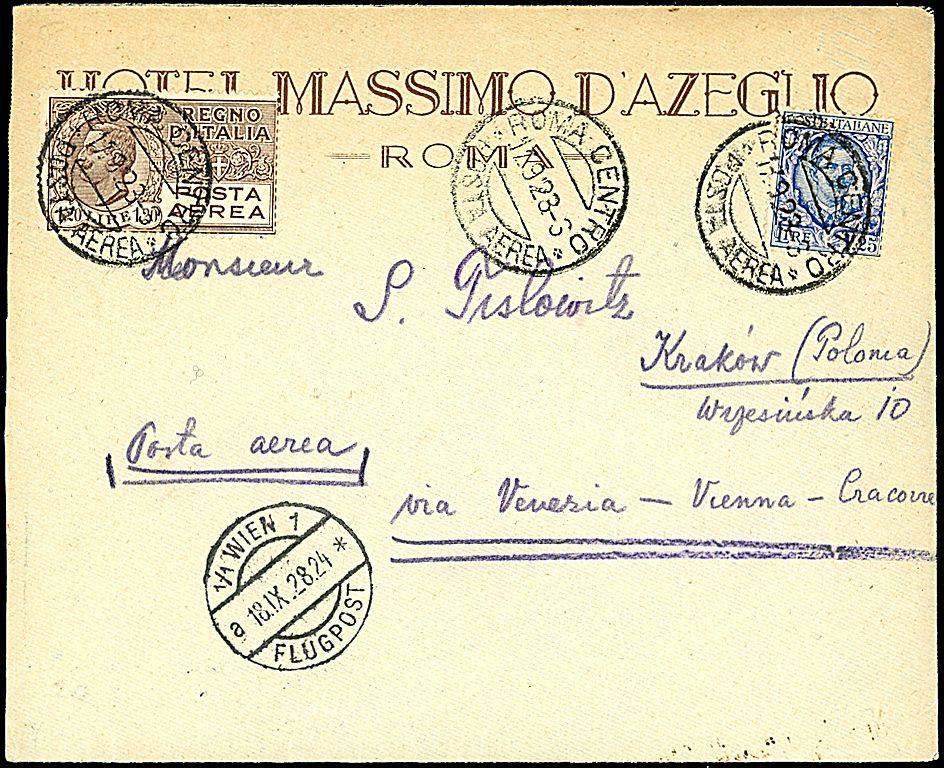 HOTEL MASSIMO D'AZEGLIO
ROMA
REGNO
D'ITALIA
POSTA
AEREA
1,20 LIRE 1,20
ROMA CENTRO
POSTA AEREA
ROMA CENTRO
17.9.28-3
POSTA AEREA
POSTE ITALIANE
LIRE 1,25
ROMA CENTRO
POSTA AEREA
Monsieur
S. Tislowitz
Kraków (Polonia)
Wrzesińska 10
Posta aerea
via Venezia – Vienna – Cracovie
WIEN 1
a 18.IX.28.24 *
FLUGPOST